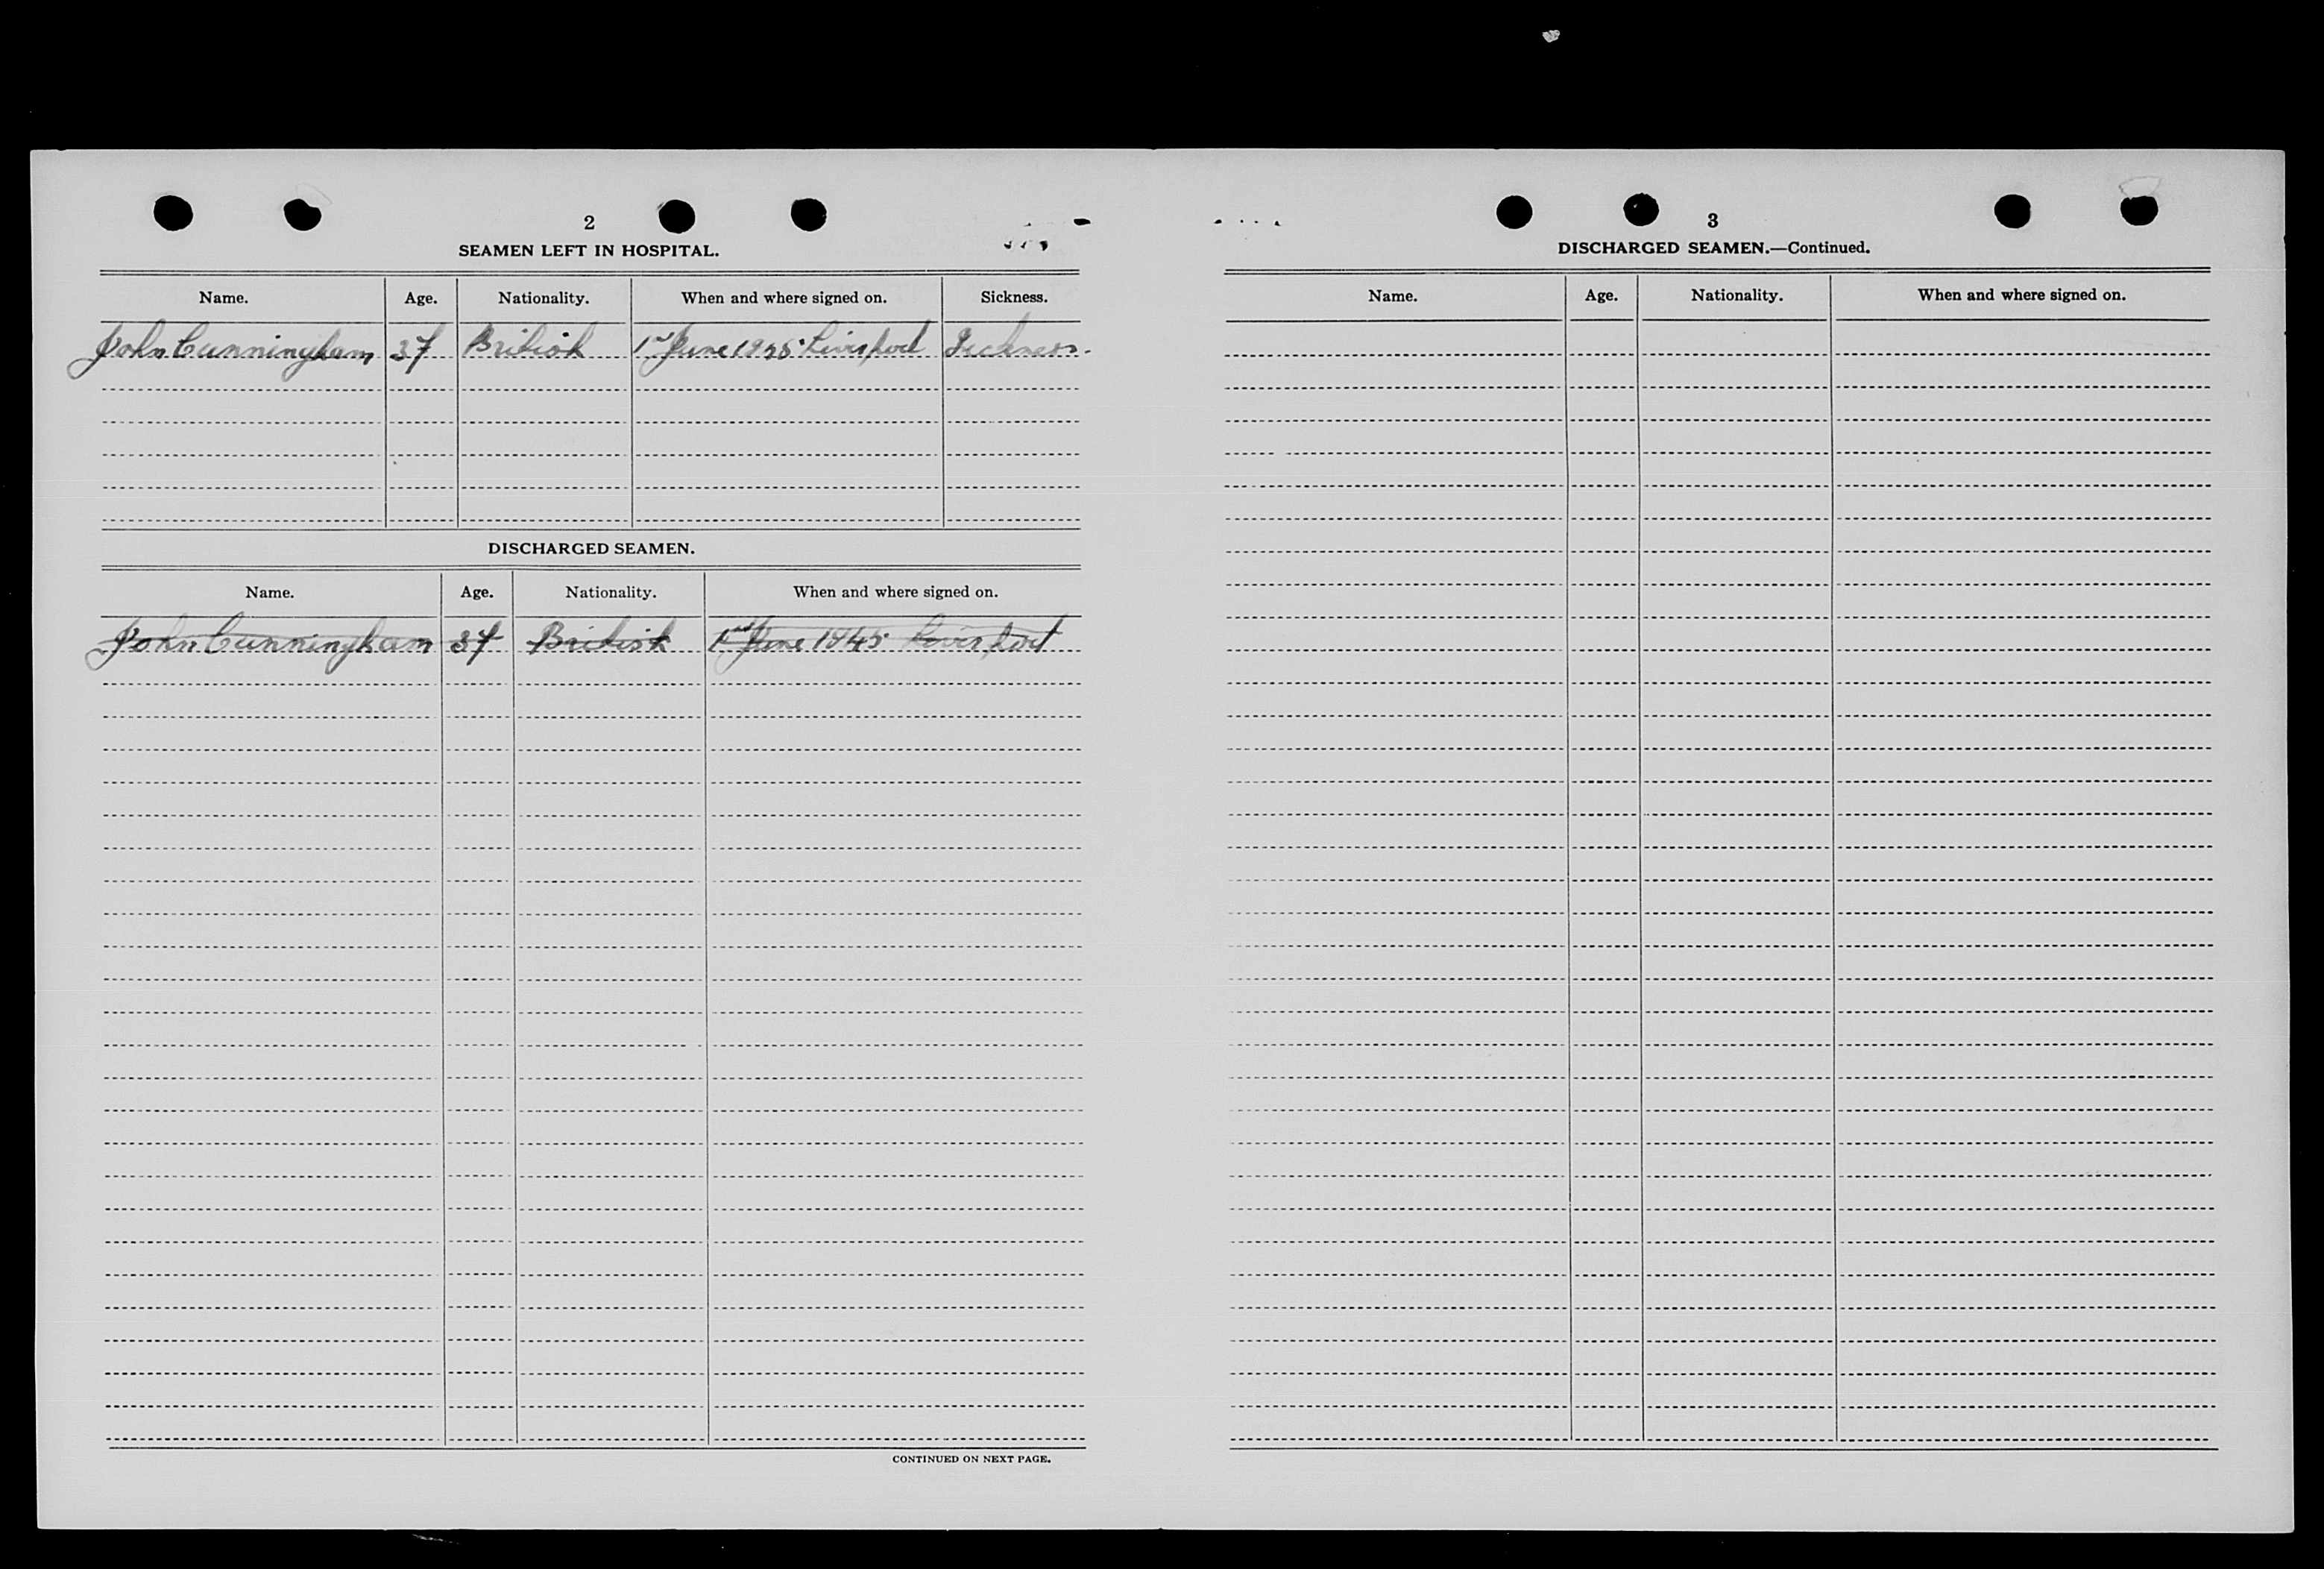 2
SEAMEN LEFT IN HOSPITAL.
Name. Age. Nationality. When and where signed on. Sickness.
John Cunningham 37 British 1st June 1945 Liverpool Sickness.
DISCHARGED SEAMEN.
Name. Age. Nationality. When and where signed on.
John Cunningham 37 British 1st June 1945 Liverpool
CONTINUED ON NEXT PAGE.
3
DISCHARGED SEAMEN.—Continued.
Name. Age. Nationality. When and where signed on.